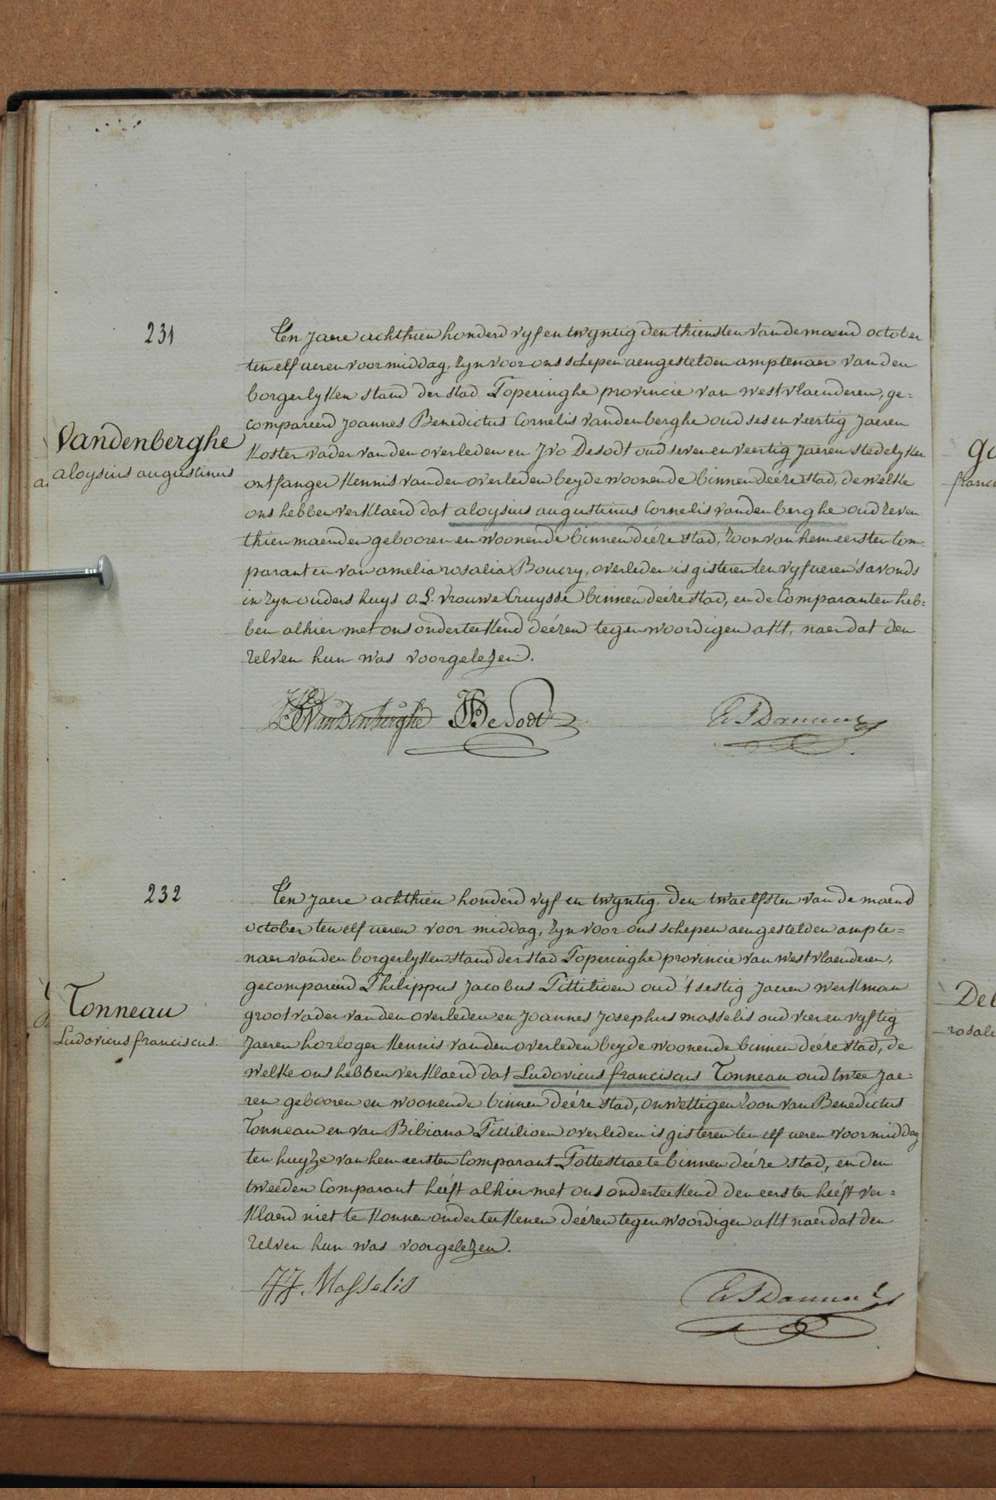 231
Vandenberghe
aloysius augustinus
Ten jaere achthien honderd vyf en twyntig den thiensten van de maend october
ten elf ueren voormiddag, zyn voor ons schepen aengestelden amptenaer van den
borgerlyken stand der stad Poperinghe provincie van westvlaenderen, ge=
compareerd joannes Benedictus Cornelis vandenberghe oud ses en veertig jaeren
koster vader van den overleden en jvo Desodt oud seven en veertig jaeren stedelyken
ontfanger kennis van den overleden beyde woonende binnen deéze stad, de welke
ons hebben verklaerd dat aloysius augustinus Cornelis vandenberghe oud zeven
thien maenden gebooren en woonende binnen deéze stad, zoon van hem eersten Com-
parant en van amelia rosalia Boucry, overleden is gisteren ten vyf ueren s'avonds
in zyn ouders huys o.L. vrouwe Cruysse binnen deeze stad, en de Comparanten heb=
ben alhier met ons onderteekend deézen tegenwoordigen akt, naer dat den
zelven hun was voorgelezen.
Vandenberghe Desodt
232
Tonneau
Ludovicus franciscus.
Ten jaere achthien honderd vyf en twyntig den twaelfsten van de maend
october ten elf ueren voor middag, zyn voor ons schepen aengestelden ampte=
naer van den borgerlyken stand der stad Poperinghe provincie van westvlaenderen,
gecompareerd Philippus jacobus Tittilioen oud 't sestig jaeren werkman
grootvader van den overleden en joannes josephus masselis oud vier en vyftig
jaeren horloger kennis van den overleden beyde woonende binnen deéze stad, de
welke ons hebben verklaerd dat Ludovicus franciscus Tonneau oud twee jae=
ren gebooren en woonende binnen deéze stad, onwettigen zoon van Benedictus
Tonneau en van Bibiana Tittilioen overleden is gisteren ten elf ueren voormiddag
ten huyze van hem eersten Comparant Pottestraete binnen deéze stad, en den
tweeden Comparant heéft alhier met ons onderteekend den eersten heéft ver=
klaerd niet te konnen onderteekenen deézen tegenwoordigen akt naer dat den
zelven hun was voorgelezen.
JJ. Masselis